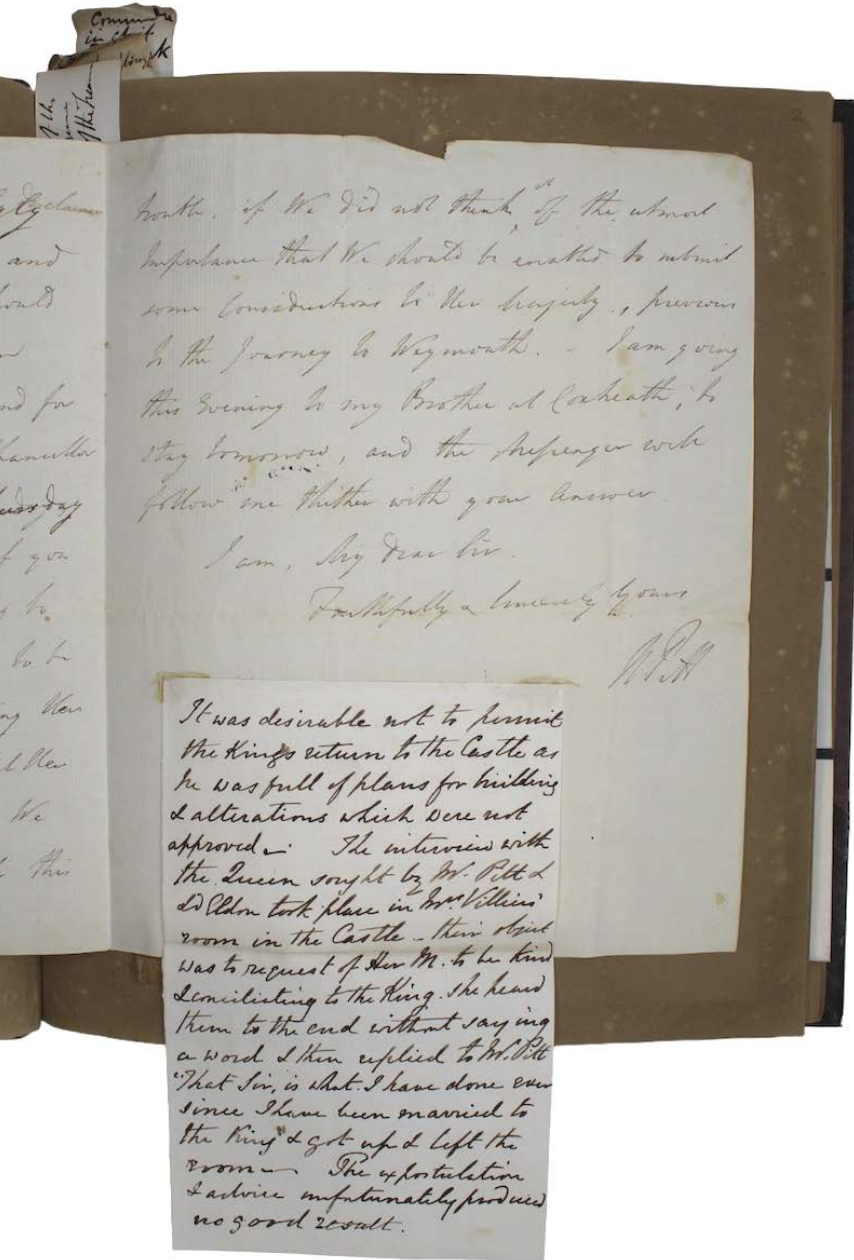 Comman
in chief
k
of the
of the
and
ould
nd for
hancellor
uesday
f you
g to
to be
ng Her
l Her
We
this
trouble, if We did not think it of the utmost
Importance that We should be enabled to submit
some Considerations to Her Majesty, previous
to the Journey to Weymouth. - I am going
this Evening to my Brother at Coxheath, to
stay tomorrow, and the Messenger will
follow me thither with your Answer.
I am, My dear Sir.
Faithfully & Sincerely Yours
W Pitt
It was desirable not to permit
the Kings return to the Castle as
he was full of plans for building
& alterations which were not
approved - The interview with
the Queen sought by Mr. Pitt &
Ld Eldon took place in Mrs Villiers'
room in the Castle - their object
was to request of Her M. to be kind
& conciliating to the King. She heard
them to the end without saying
a word & then replied to Mr. Pitt
"That Sir, is what I have done ever
since I have been married to
the King" & got up & left the
room - The expostulation
& advice unfortunately produced
no good result.